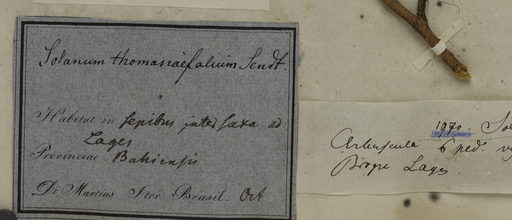 Solanum thomasiaefolium Sendt.
Habitat in sepibus inter saxa ad
Lages
Provinciae Bahiensis
Dr. Martius Iter Brasil. Oct
1970. Sol
Arbuscula 6 ped.
Prope Lages.